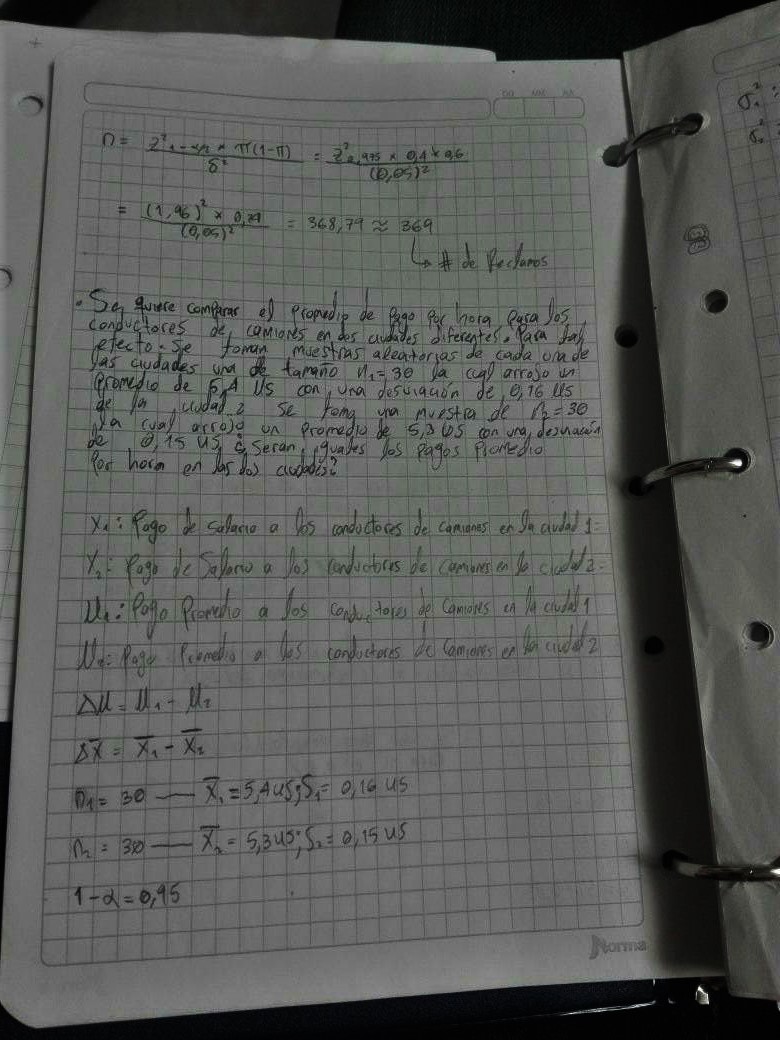 DD MM AA
n = Z²1-α/2 × π(1-π) / δ² = Z²0,975 × 0,4 × 0,6 / (0,05)²
= (1,96)² × 0,24 / (0,05)² = 368,79 ≈ 369
↳ # de Reclamos
• Se quiere comparar el promedio de Pago por hora para los
conductores de camiones en dos ciudades diferentes. Para tal
efecto. Se toman muestras aleatorias de cada una de
las ciudades una de tamaño n1=30 la cual arrojo un
Promedio de 5,4 US con una desviación de 0,16 US
de la ciudad 2 se toma una muestra de n2=30
la cual arrojo un promedio de 5,3 US con una desviación
de 0,15 US ¿Seran iguales los pagos Promedio
Por hora en las dos ciudades?
X1: Pago de salario a los conductores de camiones en la ciudad 1=
X2= Pago de Salario a los conductores de Camiones en la ciudad 2=
μ1: Pago Promedio a los conductores de Camiones en la ciudad 1
μ2: Pago Promedio a los conductores de Camiones en la ciudad 2
Δμ = μ1 - μ2
ΔX̄ = X̄1 - X̄2
n1 = 30 — X̄1 = 5,4 US; S1 = 0,16 US
n2 = 30 — X̄2 = 5,3 US; S2 = 0,15 US
1-α = 0,95
Norma
σ²1 :
σ²2 =